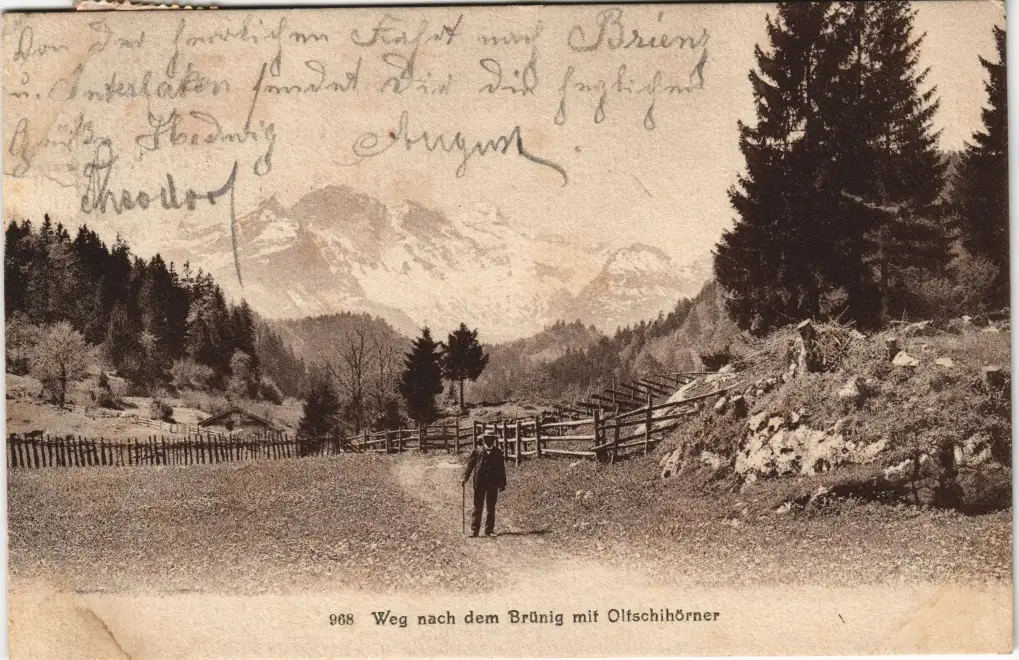 Von der herrlichen Fahrt nach Brienz
u. Interlaken sendet Dir die herzlichen
Grüße Hedwig August
Theodor
968 Weg nach dem Brünig mit Oltschihörner